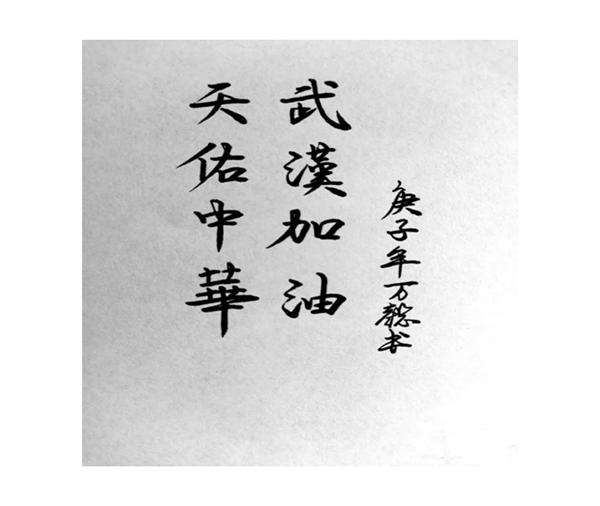 武漢加油
天佑中華
庚子年万书